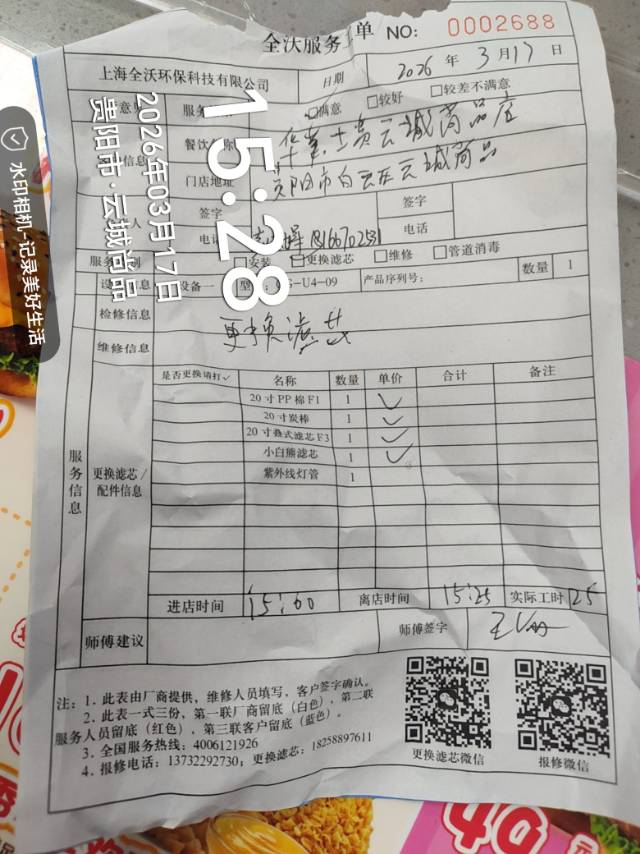 全沃服务 单 NO: 0002688
上海全沃环保科技有限公司 日期 2026 年 3 月 17 日
服务 满意 □较好 □较差不满意
餐饮 华莱士贵云城尚品店
门店地址 贵阳市白云区云城尚品
签字 签字
电话 电话
服务 □安装 □更换滤芯 □维修 □管道消毒
设备一 -U4-09 产品序列号: 数量 1
检修信息
维修信息 更换滤芯
服务信息 更换滤芯/配件信息
是否更换请打✓ 名称 数量 单价 合计 备注
20寸PP棉F1 1 ✓
20寸炭棒 1 ✓
20寸叠式滤芯F3 1 ✓
小白熊滤芯 1 ✓
紫外线灯管 1
进店时间 15:00 离店时间 15:25 实际工时 25
师傅建议 师傅签字
注: 1. 此表由厂商提供, 维修人员填写, 客户签字确认。
2. 此表一式三份, 第一联厂商留底(白色), 第二联
服务人员留底(红色), 第三联客户留底(蓝色)。
3. 全国服务热线: 4006121926
4. 报修电话: 13732292730; 更换滤芯: 18258897611
更换滤芯微信 报修微信
15:28
2026年03月17日
贵阳市·云城尚品
水印相机-记录美好生活